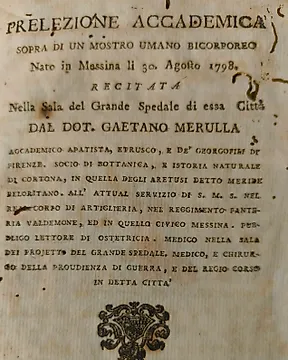 PRELEZIONE ACCADEMICA
SOPRA DI UN MOSTRO UMANO BICORPOREO
Nato in Messina li 30. Agosto 1798.
RECITATA
Nella Sala del Grande Spedale di essa Città
DAL DOT. GAETANO MERULLA
ACCADEMICO APATISTA, ETRUSCO, E DE' GEORGOFILI DI
FIRENZE. SOCIO DI BOTTANICA, E ISTORIA NATURALE
DI CORTONA, IN QUELLA DEGLI ARETUSI DETTO MERISK
PELORITANO. ALL' ATTUAL SERVIZIO DI S. M. S. NEL
REAL CORSO DI ARTIGLIERIA, NEL REGGIMENTO FANTE-
RIA VALDEMONE, ED IN QUELLO CIVICO MESSINA. PUB-
BLICO LETTORE DI OSTETRICIA. MEDICO NELLA SALA
DEI PROJETTI DEL GRANDE SPEDALE, MEDICO, E CHIRUR-
GO DELLA PROUDIENZA DI GUERRA, E DEL REGIO CORSO
IN DETTA CITTA'